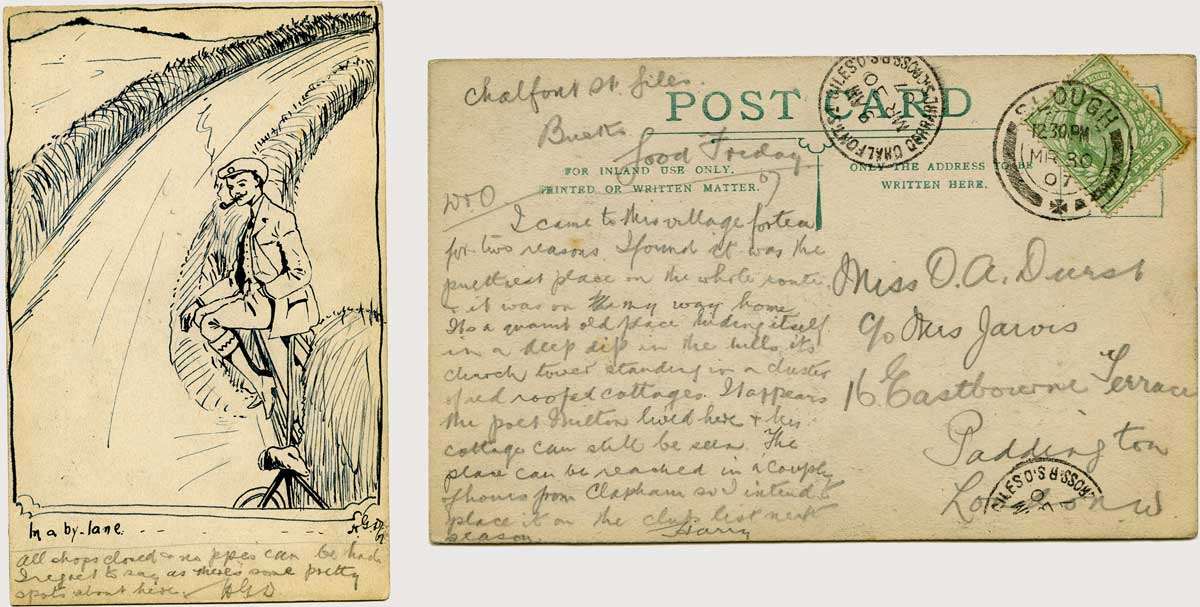 In a by-lane.
HGD
07
All shops closed & no ppcs can be had
I regret to say as there's some pretty
spots about here. HGD
Chalfont St. Giles.
Bucks
Good Friday
07
POST CARD
FOR INLAND USE ONLY.
PRINTED OR WRITTEN MATTER.
ONLY THE ADDRESS TO BE
WRITTEN HERE.
SLOUGH
12.30 PM
MR 30
07
CHALFONT ST. GILES S.O.
GERRARDS CROSS R.S.O.
MR 30
07
D. O
I came to this village for tea
for two reasons. I found it was the
prettiest place on the whole route
& it was on my way home.
Its a quaint old place hiding itself
in a deep dip in the hills, its
church tower standing in a cluster
of red roofed cottages. It appears
the poet Milton lived here & his
cottage can still be seen. The
place can be reached in a couple
of hours from Clapham so I intend to
place it on the club list next
season. Harry
Miss O. A. Durst
c/o Mrs Jarvis
16 Eastbourne Terrace
Paddington
London W
GILES S.O.
CROSS R.S.O.